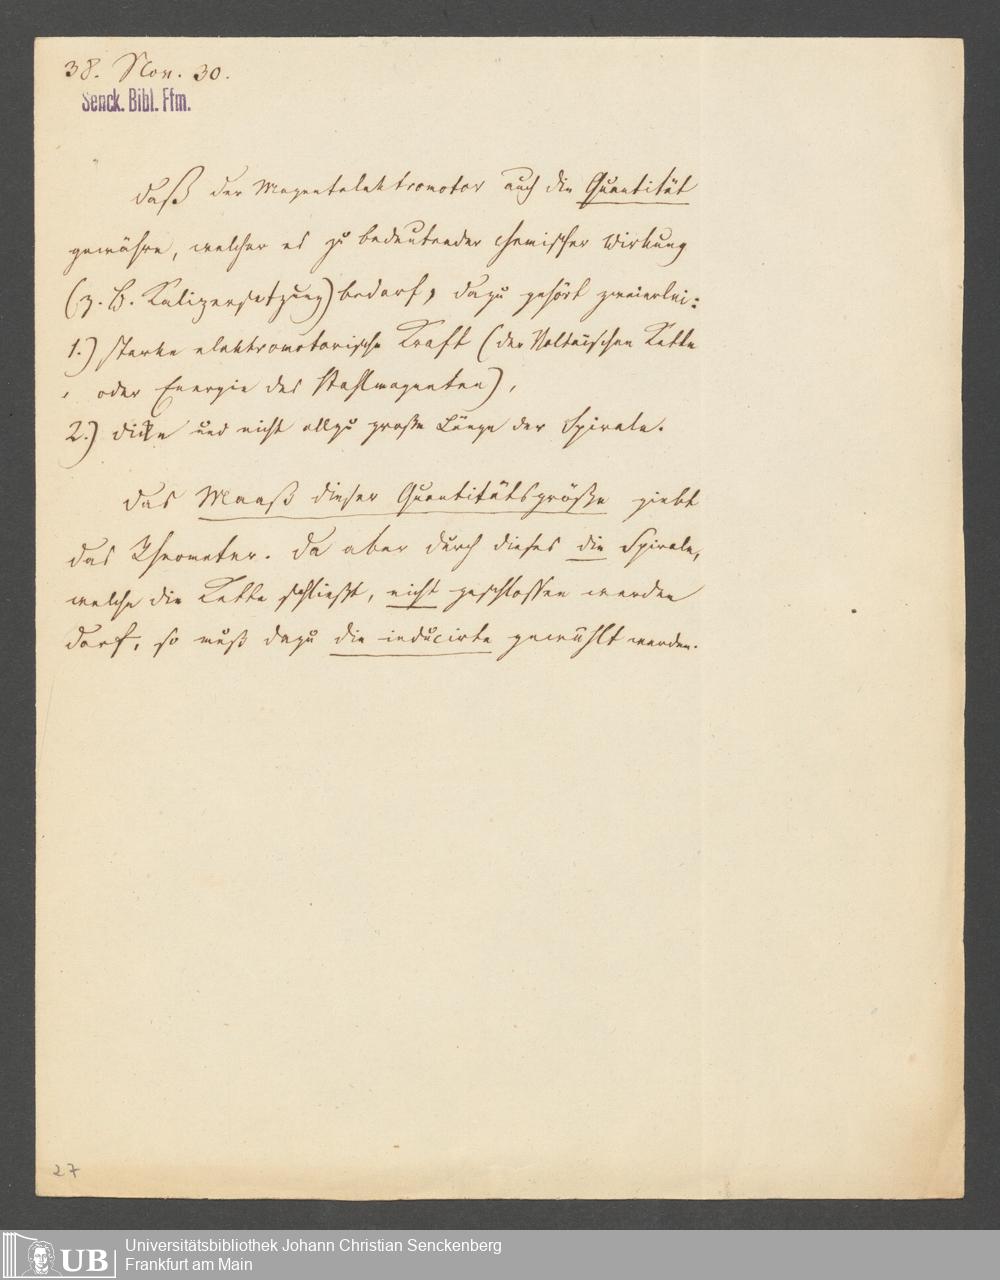 38. Nov. 30.
Senck. Bibl. Ffm.
Daß der Magnetelektromotor auch die Quantität
gewähre, welcher es zu bedeutender chemischer Wirkung
(z. B. Kalizersetzung) bedarf, dazu gehört zweierlei:
1.) starke elektromotorische Kraft (der Voltaischen Kette
oder Energie des Stahlmagneten),
2.) dicke und nicht allzu große Länge der Spirale.
Das Maaß dieser Quantitätsgröße giebt
das Rheometer. Da aber durch dieses die Spirale,
welche die Kette schließt, nicht geschlossen werden
darf, so muß dazu die inducirte gewählt werden.
27
UB
Universitätsbibliothek Johann Christian Senckenberg
Frankfurt am Main